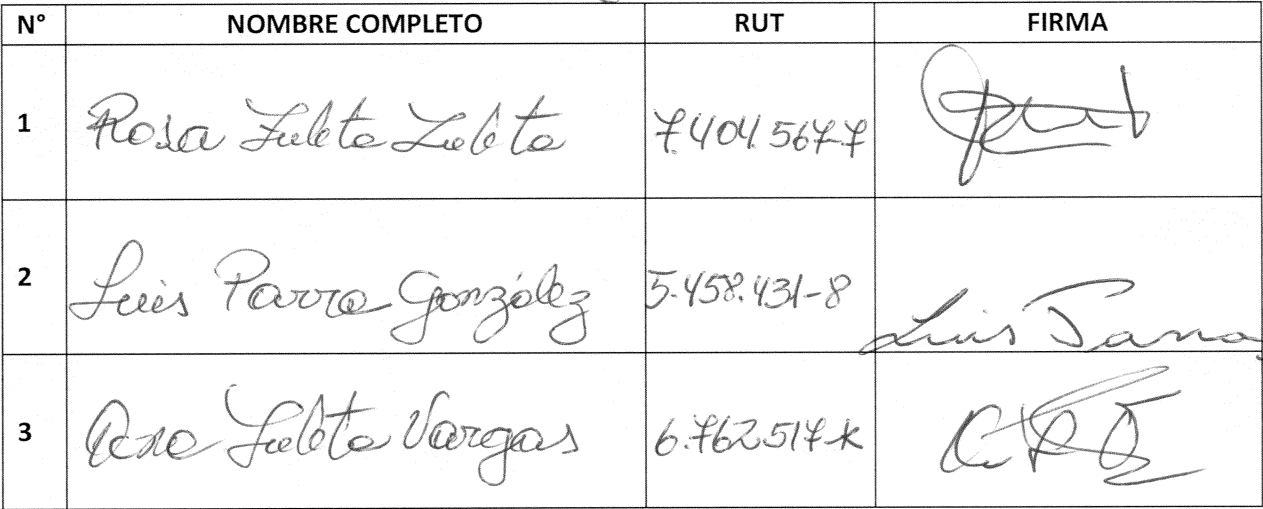 N° NOMBRE COMPLETO RUT FIRMA
1 Rosa Zuleta Zuleta 7.404.567-7
2 Luis Parra González 5.458.431-8 Luis Parra
3 Ana Zuleta Vargas 6.762.517-K